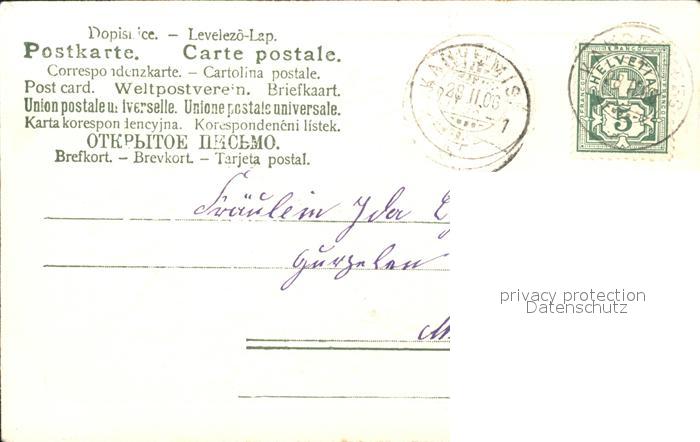 Dopisnice. – Levelező-Lap.
Postkarte. Carte postale.
Correspondenzkarte. – Cartolina postale.
Post card. Weltpostverein. Briefkaart.
Union postale universelle. Unione postale universale.
Karta korespondencyjna. Korespondenčni listek.
ОТКРЫТОЕ ПИСЬМО.
Brefkort. – Brevkort. – Tarjeta postal.
FRANCO
HELVETIA
5
1
Fräulein Ida
Gurzelen
privacy protection
Datenschutz